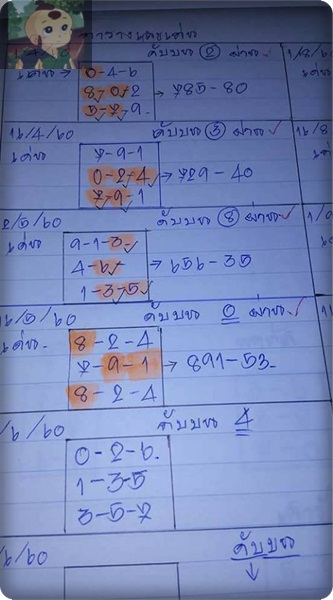 ตารางเลขเด่น
ดับบน ② ผ่าน ✓ 1/8/6
เด่น → 0-4-6
8-0-2 → 785-80
5-7-9
16/4/60 ดับบน ③ ผ่าน ✓ 16/8
เด่น 7-9-1
0-2-4 → 729-40
7-9-1
2/5/60 ดับบน ⑧ ผ่าน ✓ 1/9
เด่น 9-1-3
4-6 → 656-35
1-3-5
16/5/60 ดับบน 0 ผ่าน ✓
เด่น. 8-2-4
7-9-1 → 891-53
8-2-4
/6/60 ดับบน 4
0-2-6.
1-3-5
3-5-7
/6/60 ดับบน
↓